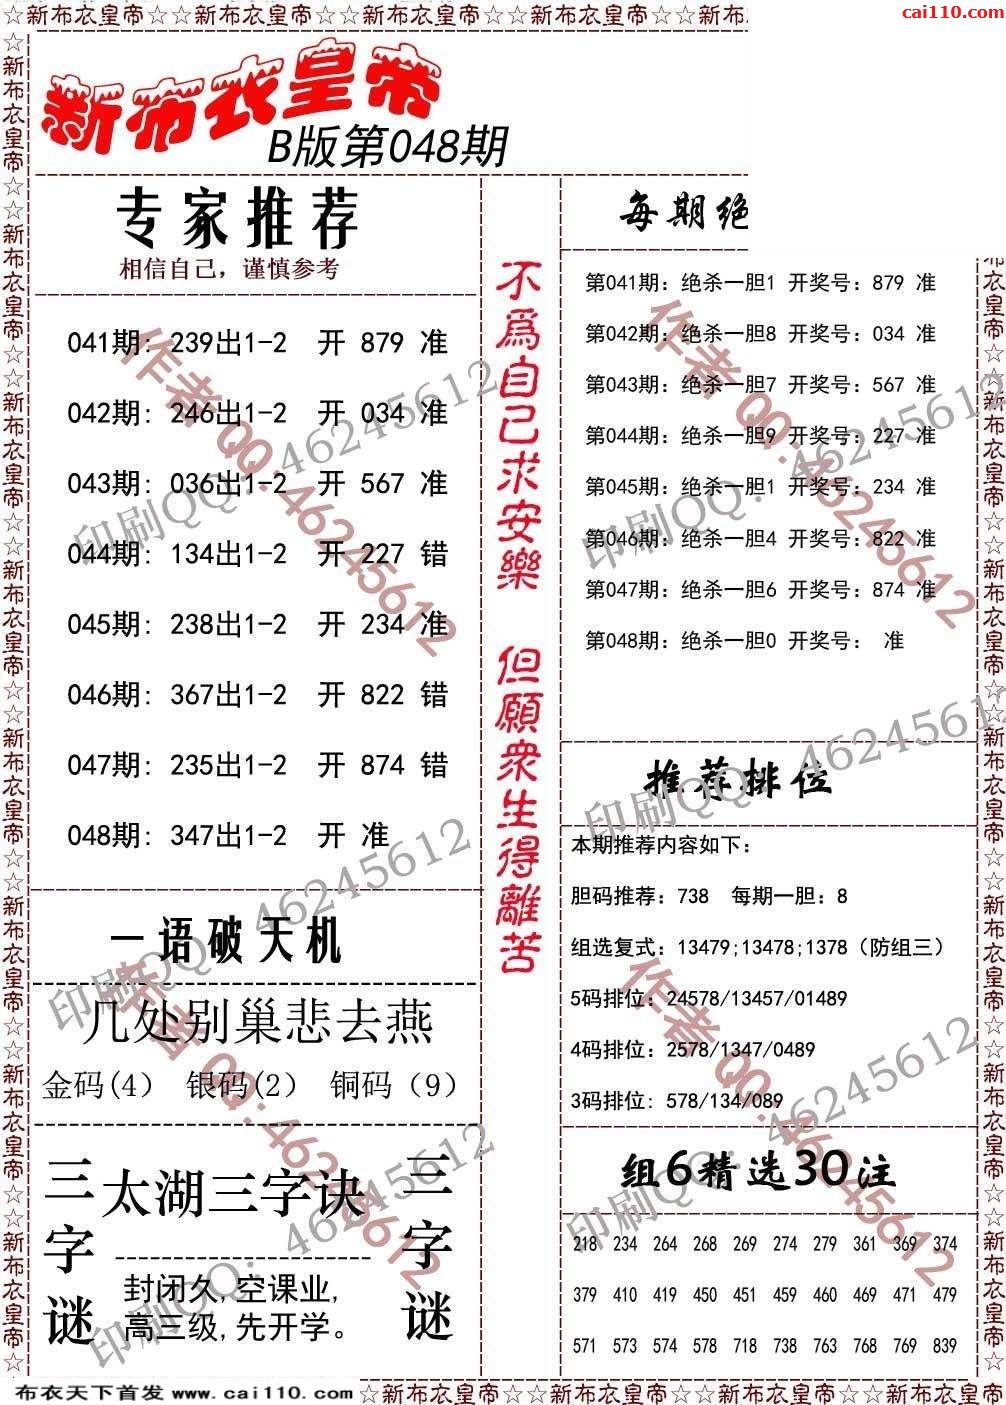 ☆新布衣皇帝☆☆新布衣皇帝☆☆新布衣皇帝☆☆新布衣皇帝☆☆新布
cai110.com
新布衣皇帝
B版第048期
专家推荐
相信自己，谨慎参考
041期: 239出1-2 开 879 准
042期: 246出1-2 开 034 准
043期: 036出1-2 开 567 准
044期: 134出1-2 开 227 错
045期: 238出1-2 开 234 准
046期: 367出1-2 开 822 错
047期: 235出1-2 开 874 错
048期: 347出1-2 开 准
一语破天机
几处别巢悲去燕
金码(4) 银码(2) 铜码（9）
三字谜
太湖三字诀
封闭久,空课业,
高三级,先开学。
三字谜
不為自己求安樂 但願衆生得離苦
每期绝
第041期: 绝杀一胆1 开奖号: 879 准
第042期: 绝杀一胆8 开奖号: 034 准
第043期: 绝杀一胆7 开奖号: 567 准
第044期: 绝杀一胆9 开奖号: 227 准
第045期: 绝杀一胆1 开奖号: 234 准
第046期: 绝杀一胆4 开奖号: 822 准
第047期: 绝杀一胆6 开奖号: 874 准
第048期: 绝杀一胆0 开奖号: 准
推荐排位
本期推荐内容如下:
胆码推荐: 738 每期一胆: 8
组选复式: 13479;13478;1378（防组三）
5码排位: 24578/13457/01489
4码排位: 2578/1347/0489
3码排位: 578/134/089
组6精选30注
218 234 264 268 269 274 279 361 369 374
379 410 419 450 451 459 460 469 471 479
571 573 574 578 718 738 763 768 769 839
作者QQ:46245612
作者QQ:46245612
作者QQ:46245612
作者QQ:46245612
印刷QQ: 46245612
印刷QQ: 46245612
印刷QQ: 46245612
印刷QQ: 46245612
印刷QQ: 46245612
印刷QQ: 46245612
布衣天下首发 www.cai110.com
☆新布衣皇帝☆☆新布衣皇帝☆☆新布衣皇帝☆☆新布衣皇帝☆